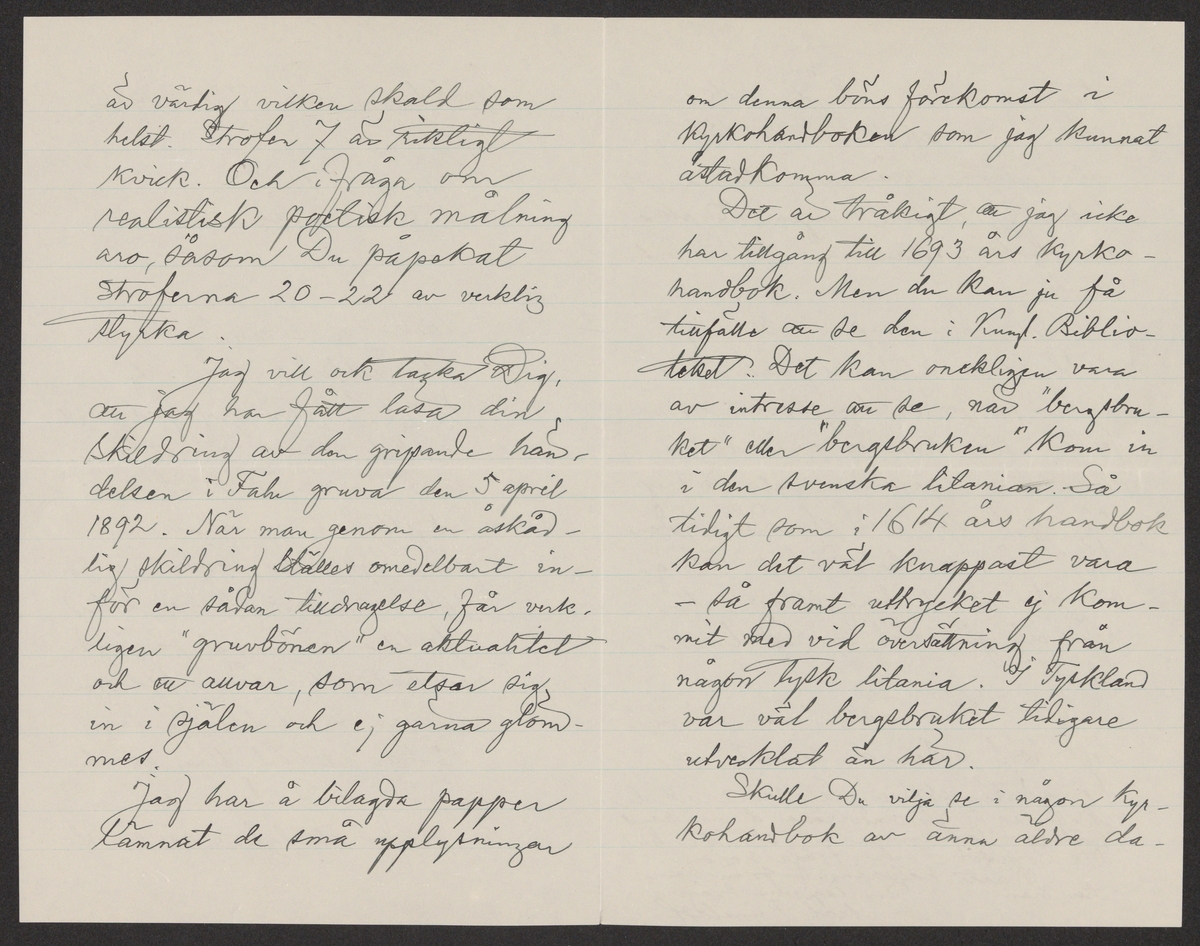 är värdig vilken skald som
helst. Strofen 7 är riktigt
kvick. Och i fråga om
realistisk poetisk målning
äro, såsom Du påpekat
stroferna 20-22 av verklig
styrka.
Jag vill ock tacka Dig,
att jag har fått läsa din
skildring av den gripande hän-
delsen i Falu gruva den 5 april
1892. När man genom en åskåd-
lig skildring ställes omedelbart in-
för en sådan tilldragelse, får verk-
ligen "gruvbönen" en aktualitet
och ett allvar, som etsar sig
in i själen och ej gärna glöm-
mes.
Jag har å bilagda papper
lämnat de små upplysningar
om denna böns förekomst i
kyrkohandboken som jag kunnat
åstadkomma.
Det är tråkigt, att jag icke
har tillgång till 1693 års kyrko-
handbok. Men du kan ju få
tillfälle att se den i Kungl. Biblio-
teket. Det kan onekligen vara
av intresse att se, när "bergsbru-
ket" eller "bergsbruken" kom in
i den svenska litanian. Så
tidigt som i 1614 års handbok
kan det väl knappast vara
- så framt uttrycket ej kom-
mit med vid översättning från
någon tysk litania. I Tyskland
var väl bergsbruket tidigare
utvecklat än här.
Skulle Du vilja se i någon kyr-
kohandbok av ännu äldre da-